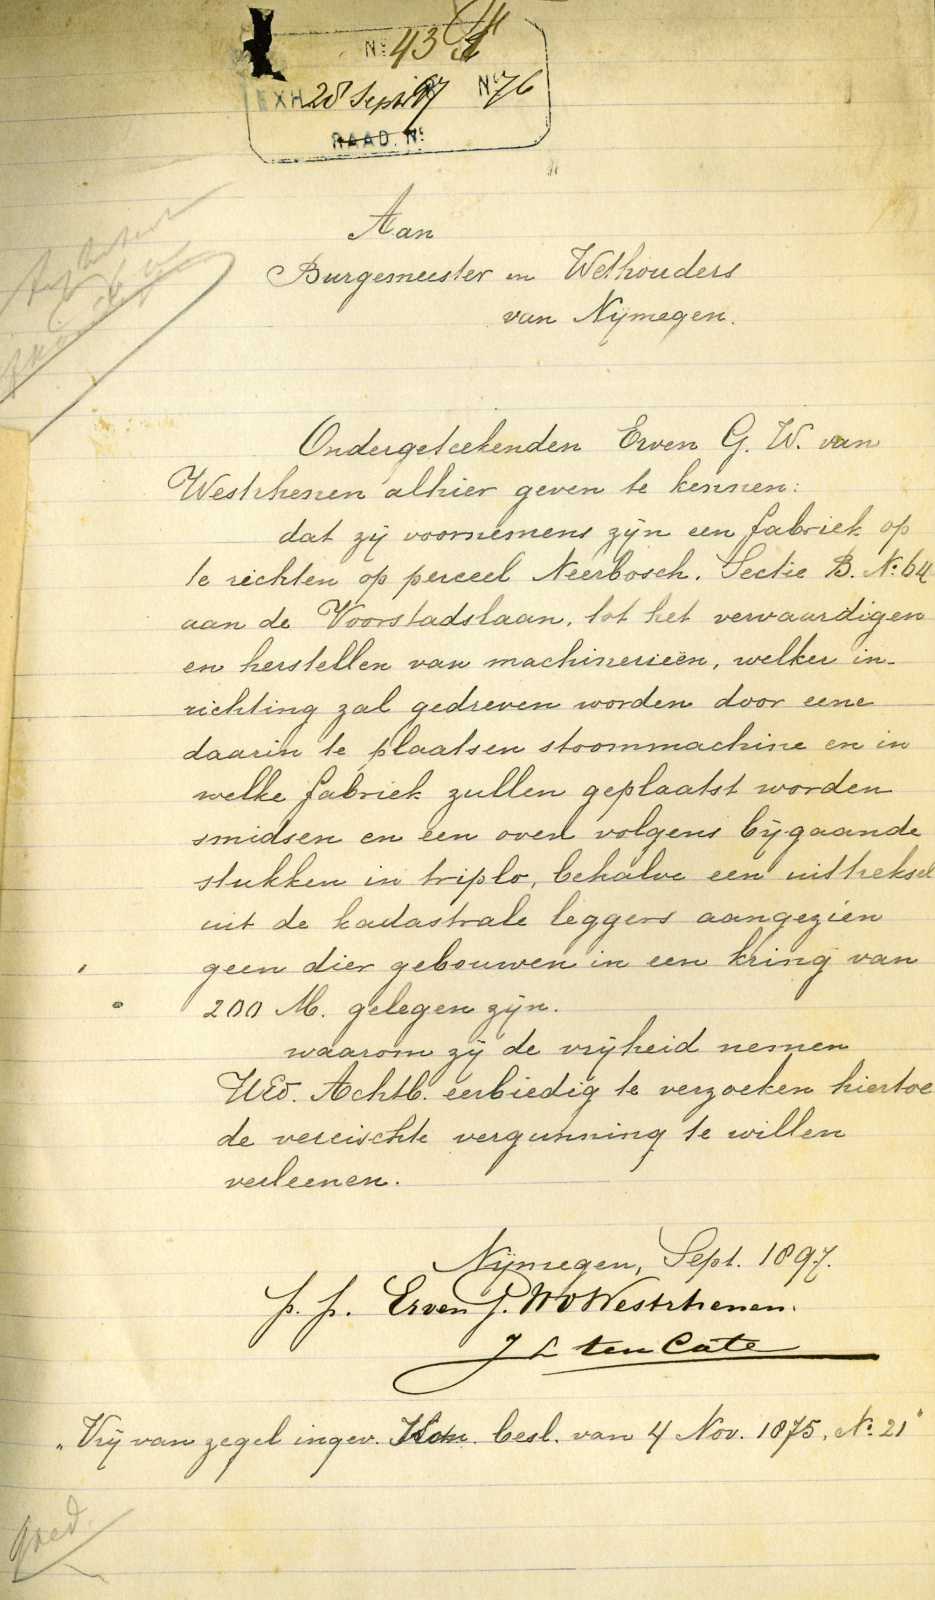 No 43
EXH 28 Sept 97 No 76
RAAD. No
Aan
Burgemeester en Wethouders
van Nijmegen.
Ondergeteekenden Erven G. W. van
Westrhenen alhier geven te kennen:
dat zij voornemens zijn een fabriek op
te richten op perceel Neerbosch. Sectie B. No 64
aan de Voorstadslaan, tot het vervaardigen
en herstellen van machinerieën, welker in-
richting zal gedreven worden door eene
daarin te plaatsen stoommachine en in
welke fabriek zullen geplaatst worden
smidsen en een oven volgens bijgaande
stukken in triplo, behalve een uittreksel
uit de kadastrale leggers aangezien
geen dier gebouwen in een kring van
200 M. gelegen zijn.
waarom zij de vrijheid nemen
UEd. Achtb. eerbiedig te verzoeken hiertoe
de vereischte vergunning te willen
verleenen.
Nijmegen, Sept. 1897.
p. p. Erven G. W v Westrhenen.
J L ten Cate
"Vrij van zegel ingev. Kon. besl. van 4 Nov. 1875, No 21"
goed.